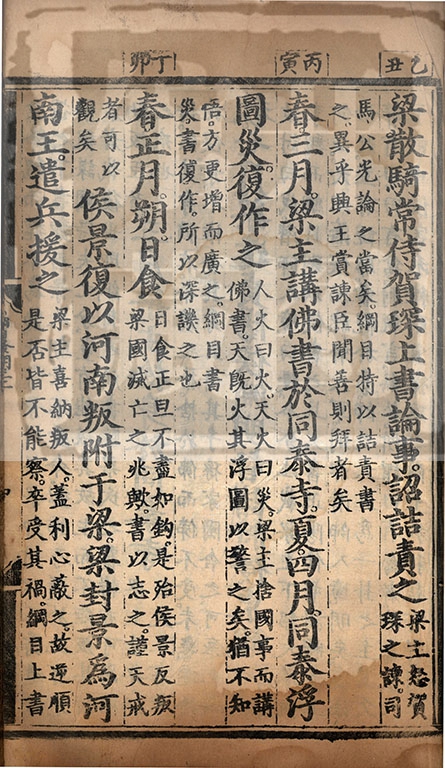 乙丑
梁散騎常侍賀琛上書論事。詔詰責之
梁主怒賀
琛之諫。司
馬公光論之當矣。綱目特以詰責書
之。異乎興王賞諫臣聞善則拜者矣
丙寅
春三月。梁主講佛書於同泰寺。夏四月。同泰浮
圖災。復作之
人火曰火。天火曰災。梁主捨國事而講
佛書。天旣火其浮圖以警之矣。猶不知
悟。方更增而廣之。綱目書
災。書復作。所以深譏之也
丁卯
春正月。朔。日食
日食正旦不盡如鈎。是殆侯景反叛
梁國滅亡之兆歟。書以志之。謹天戒
者可以
觀矣
侯景復以河南叛附于梁。梁封景爲河
南王。遣兵援之
梁主喜納叛人。蓋利心蔽之。故逆順
是否皆不能察。卒受其禍。綱目上書